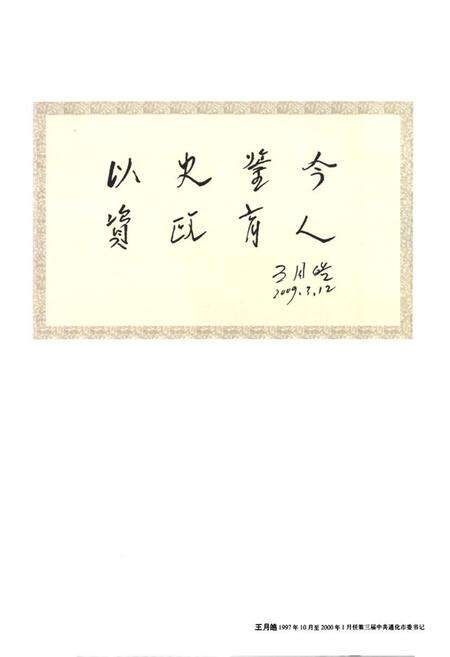 以史鉴今
資政育人
王月皓
2009.3.12
王月皓 1997年10月至2000年1月任第三届中共通化市委书记